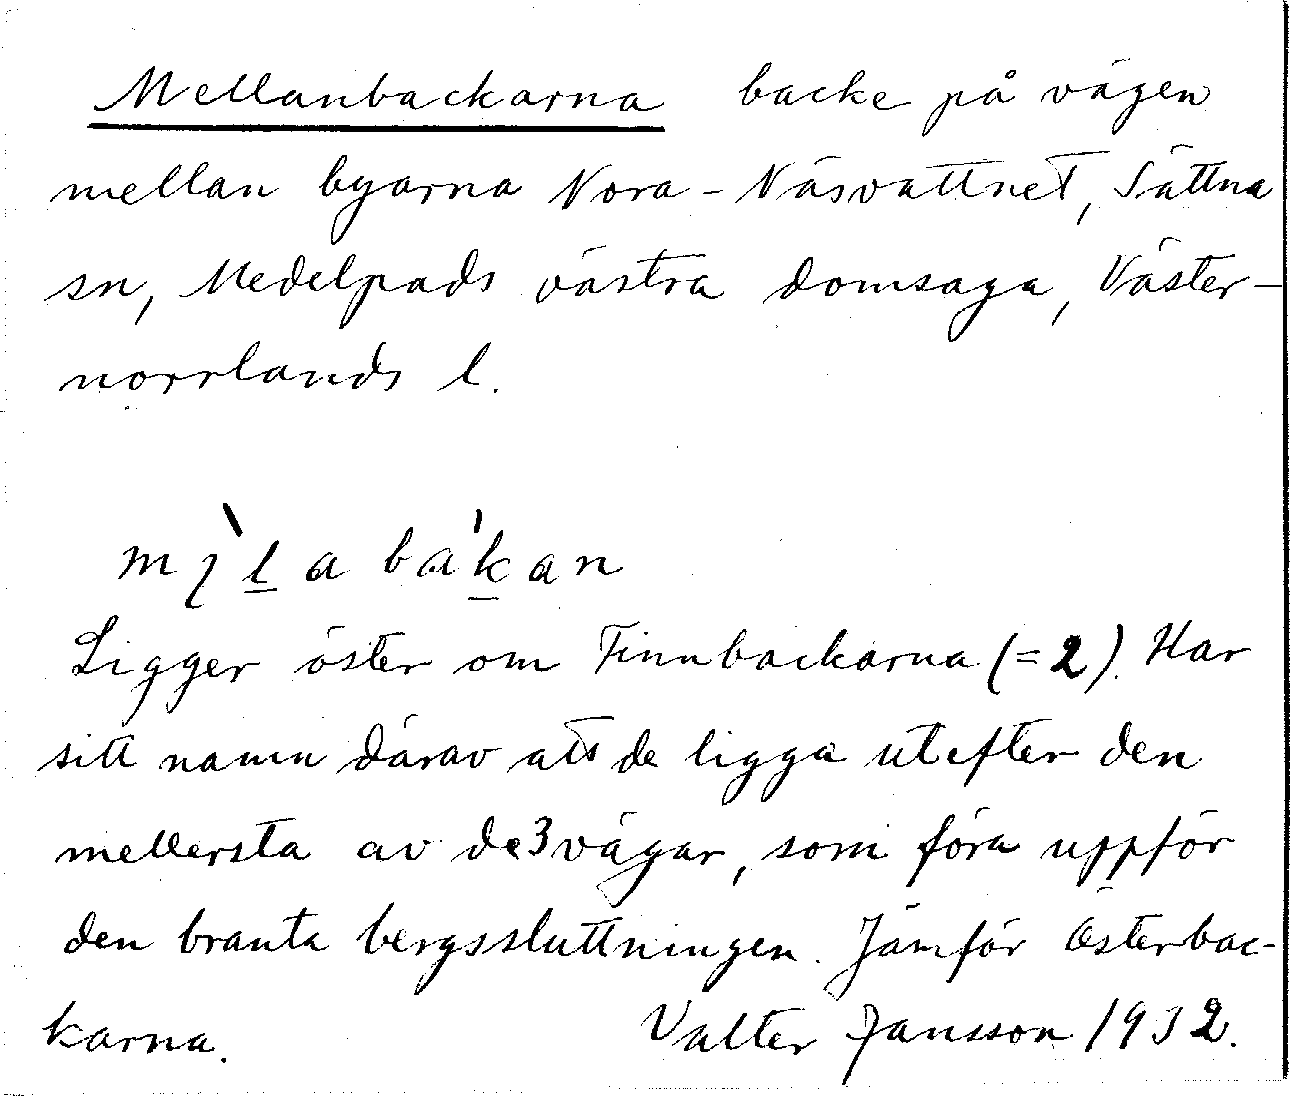 Mellanbackarna backe på vägen
mellan byarna Nora - Näsvattnet, Sättna
sn, Medelpads västra domsaga, Väster-
norrlands l.
Ligger öster om Finnbackarna (=2). Har
sitt namn därav att de ligga utefter den
mellersta av de 3 vägar, som föra uppför
den branta bergssluttningen. Jämför Österbac-
karna. Valter Jansson 1932.